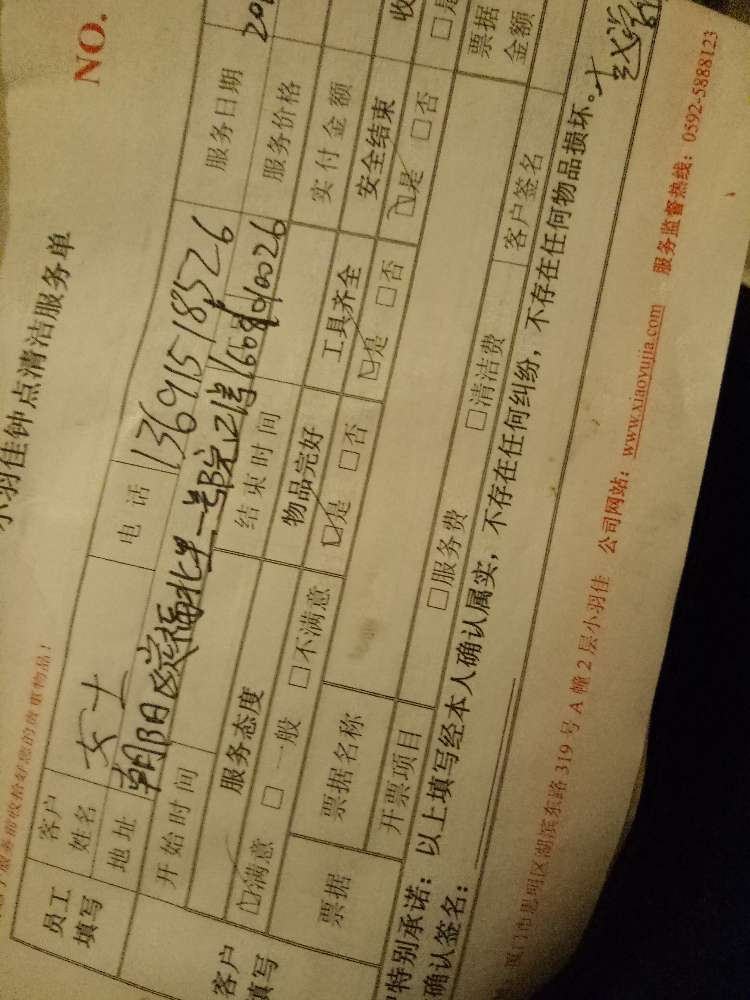 小羽佳钟点清洁服务单
NO.
服务前收拾好您的贵重物品!
员工填写 客户姓名 女士 电话 13691518526 服务日期 20
地址 朝阳区 北里一号院 1608 服务价格
开始时间 结束时间 实付金额
客户填写 服务态度 物品完好 工具齐全 安全结束 收
☑满意 □一般 □不满意 ☑是 □否 ☑是 □否 ☑是 □否 □是
票据 票据名称 票据金额
开票项目 □服务费 □清洁费 客户签名
特别承诺:以上填写经本人确认属实,不存在任何纠纷,不存在任何物品损坏。
确认签名:
厦门市思明区湖滨东路 319 号 A 幢 2 层小羽佳 公司网站:www.xiaoyujia.com 服务监督热线:0592-5888123